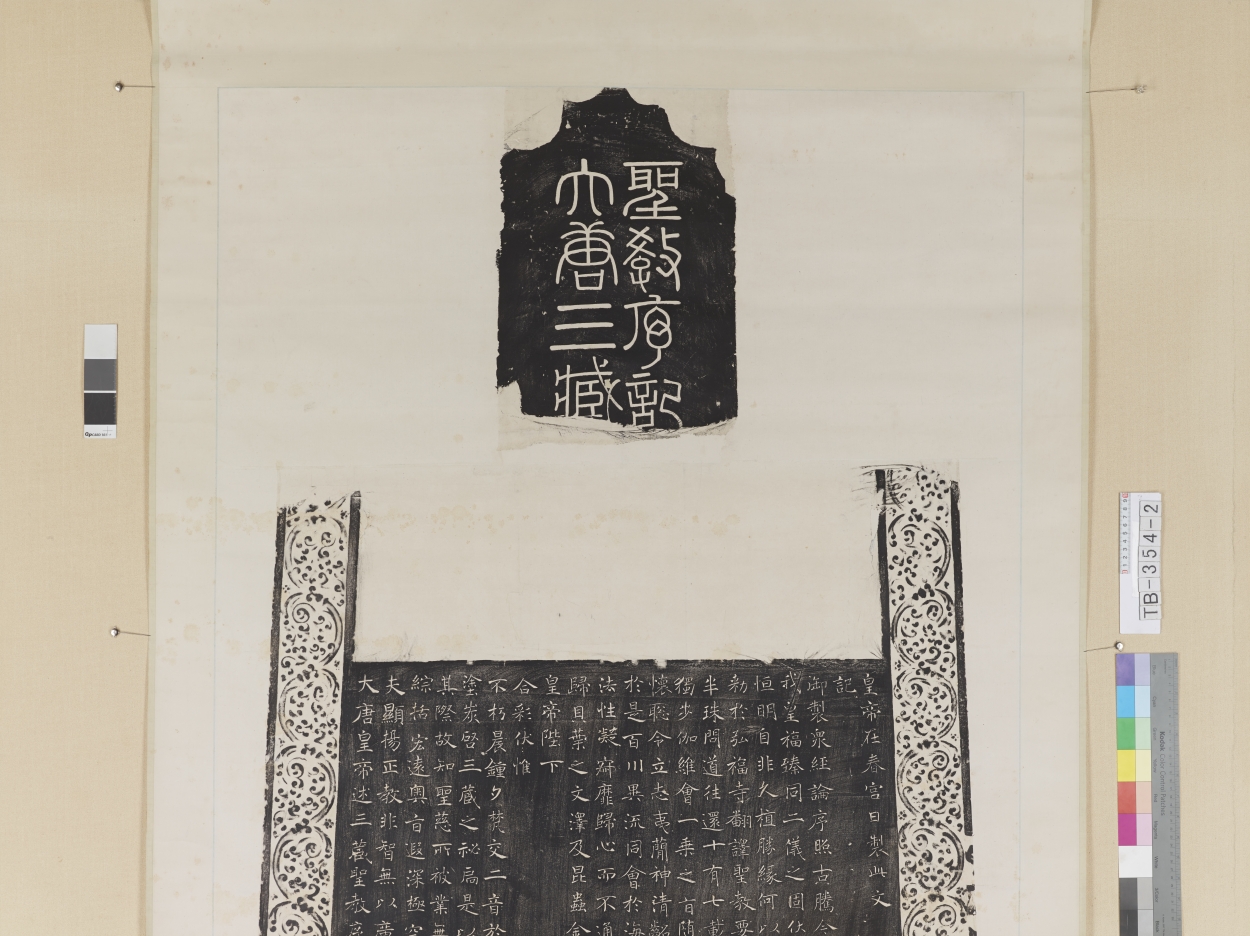 大唐三藏
聖教序記
大唐皇帝述三藏聖教序
夫顯揚正教非智無以廣
綜括宏遠奧旨遐深極空
其際故知聖慈所被業無
塗炭啓三藏之祕扃是以
不朽晨鐘夕梵交二音於
合彩伏惟
皇帝陛下
歸貝葉之文澤及昆蟲金
法性凝寂靡歸心而不通
於是百川異流同會於海
懷聰令立志夷簡神清齠
獨步伽維會一乘之旨隨
半珠問道往還十有七載
勑於弘福寺翻譯聖教要
恒明自非久植勝緣何以
我皇福臻同二儀之固伏
御製衆經論序照古騰今
記
皇帝在春宮日製此文
TB-354-2
Kodak Color Control Patches